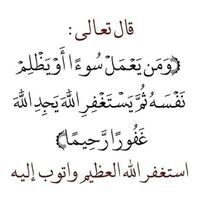 قال تعالى :
﴿وَمَن يَعْمَلْ سُوءًا أَوْ يَظْلِمْ
نَفْسَهُ ثُمَّ يَسْتَغْفِرِ اللَّهَ يَجِدِ اللَّهَ
غَفُورًا رَّحِيمًا﴾
استغفر الله العظيم واتوب إليه